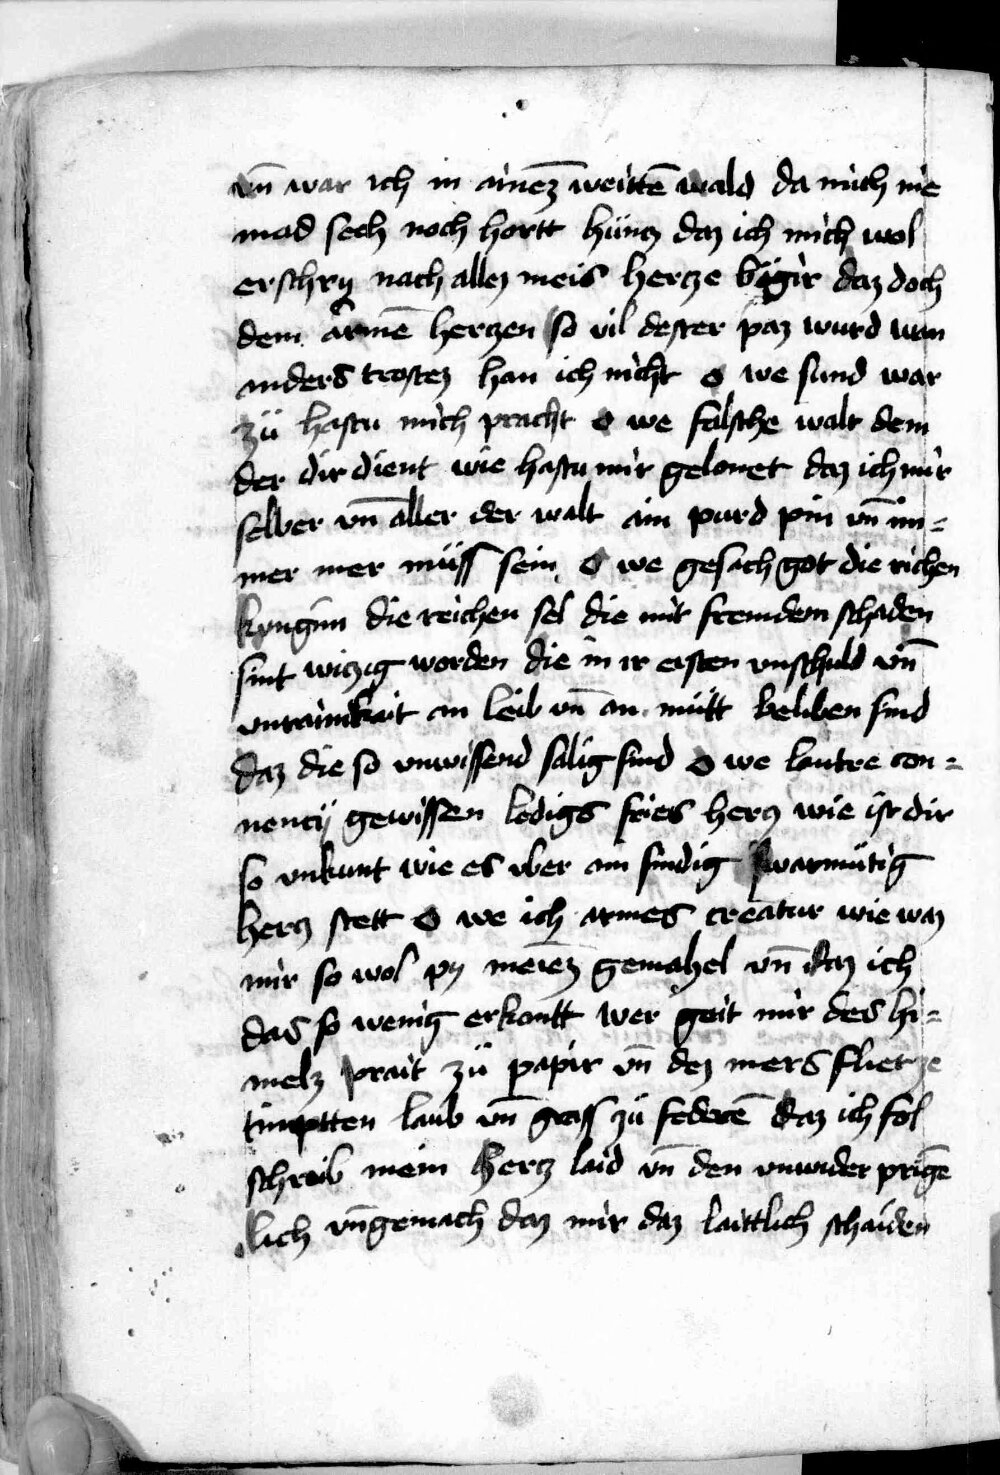 vn̄ war ich in aineꝫ weittē wald da mich nie
mad sech noch hortt küncz daz ich mich wol
erschry nach allez meis hercze bᷓgir daz doch
dem armē herczen so vil dester paz wurd wan
anders trostez han ich nicht O we sund war
zü hastu mich pracht O we falsche walt dem
der dir dient wie hastu mir gelonet daz ich mir
selber vn̄ aller der walt ain purd pin vn̄ im=
mer mer müss sein O we gesach got die richen
kungiin die reichen sel die mit fremdem schaden
sint wiczig worden die in ir ersten vnschuld vn̄
vnrainikait an leib vn̄ an mütt beliben sind
daz die so vnwissend salig sind O we lautre con=
nencij gewissen ledigs fries hercz wie ist dir
so vnkunt wie es vber am sindig swarmütig
hercz stett O we ich armes creatur wie waz
mir so wol py meineꝫ gemahel vn̄ daz ich
das so wenig erkantt wer gait mir des hi=
melz prait zü papir vn̄ dez mers flietze
timptten laub vn̄ grass zü federē daz ich fol
schreib mein hercz laid vn̄ den vnwider pringē
lich vn̄gemach daz mir daz laittlich schaiden